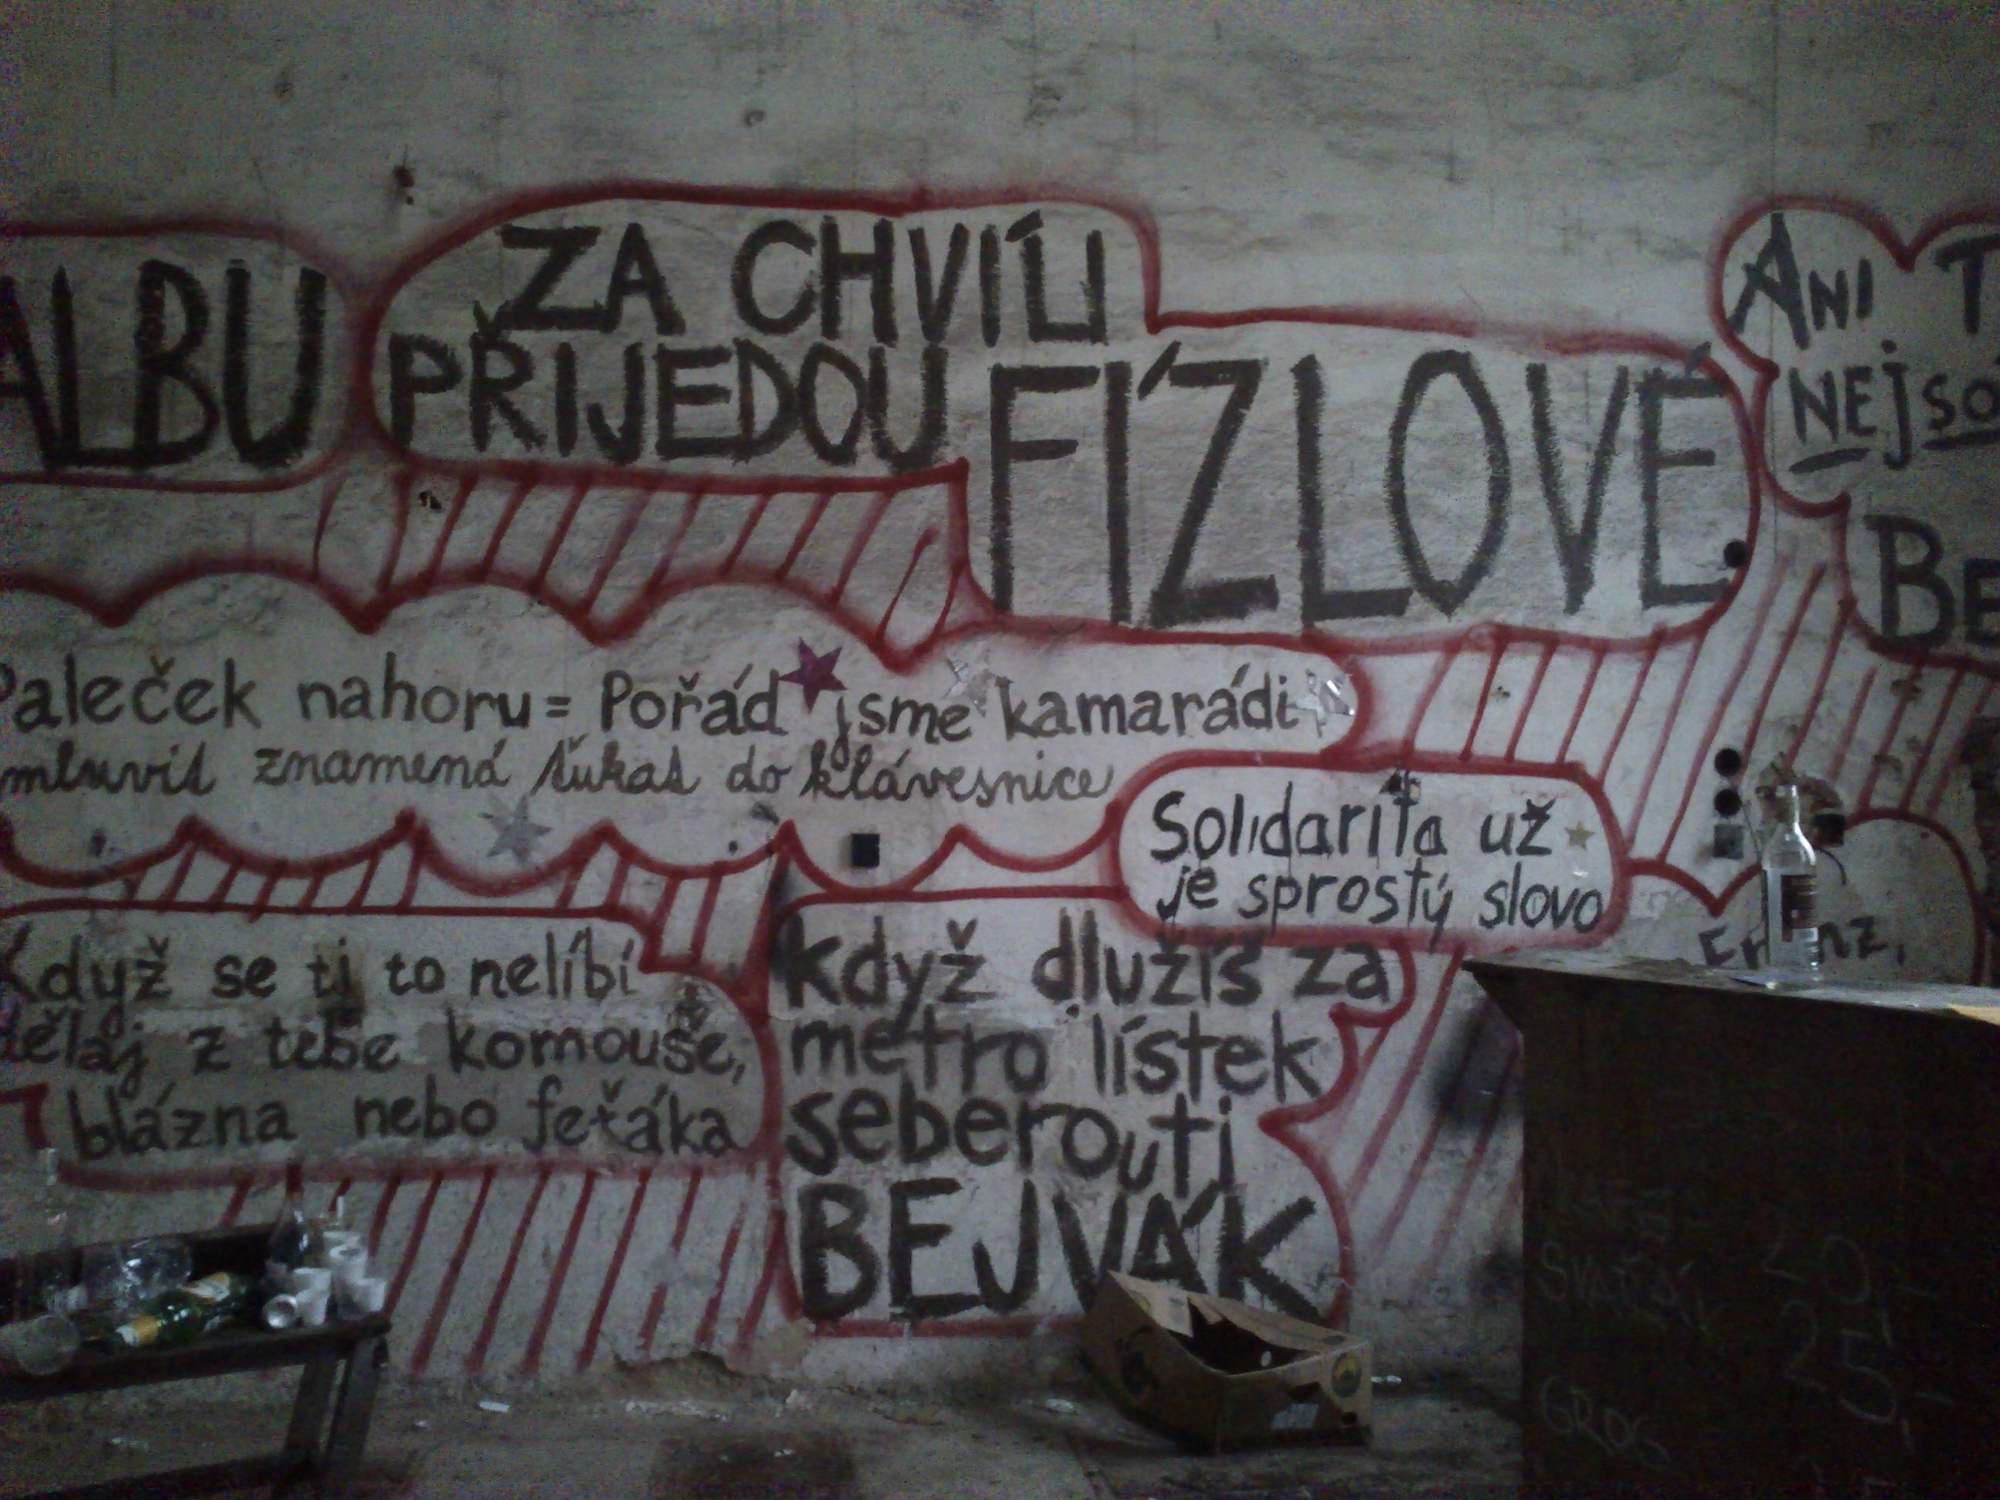 ALBU
ZA CHVÍLI
PŘIJEDOU
FÍZLOVÉ
ANI
NEJSO
BE
Paleček nahoru = Pořád jsme kamarádi
mluvit znamená ťukat do klávesnice
Solidarita už
je sprostý slovo
Když se ti to nelíbí
dělaj z tebe komouše,
blázna nebo feťáka
když dlužíš za
metro lístek
seberou ti
BEJVÁK
SVAŘÁK
20,-
25,-
GROG